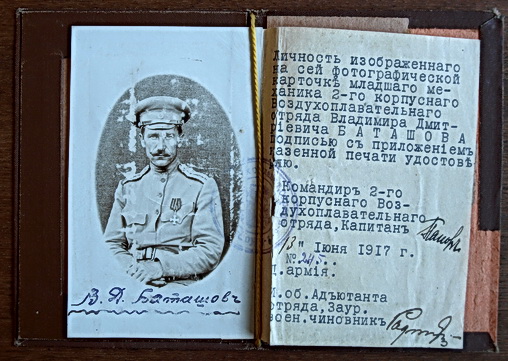 В. Д. Баташовъ
Личность изображеннаго
на сей фотографической
карточкѣ младшаго ме-
ханика 2-го корпуснаго
Воздухоплавательнаго
отряда Владимира Дмит-
ріевича БАТАШОВА
подписью съ приложеніемъ
казенной печати удостовѣ
ряю.
Командиръ 2-го
корпуснаго Воз-
духоплавательнаго
отряда, Капитанъ
"13" Іюня 1917 г.
№ 245...
Д. армія.
И. об. Адъютанта
отряда, Заур.
воен. чиновникъ